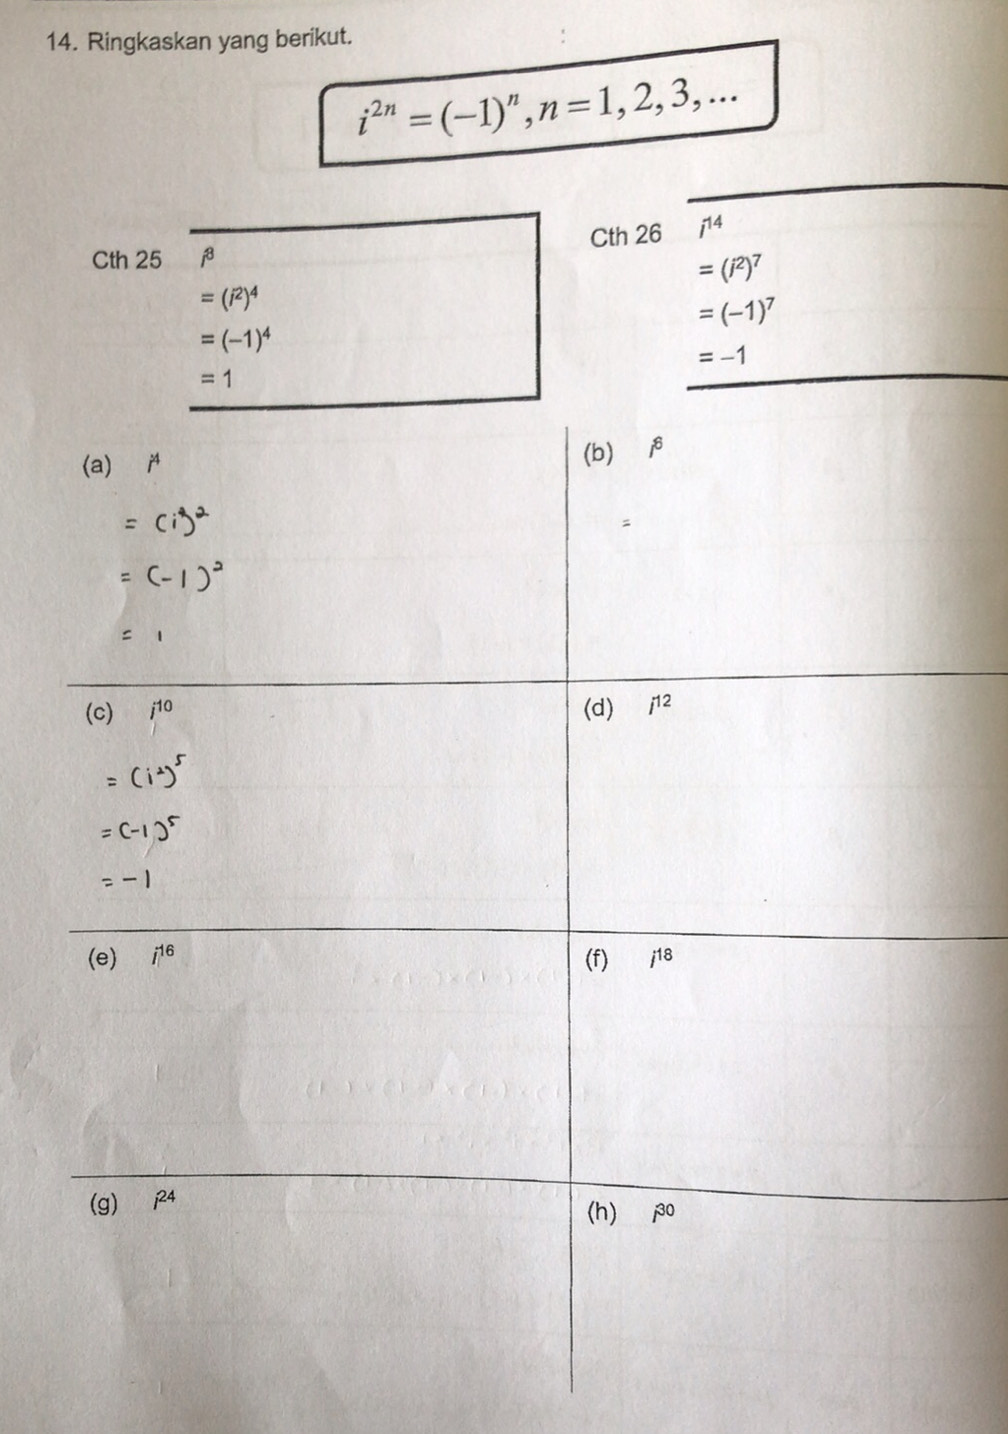 14. Ringkaskan yang berikut.
i²ⁿ = (−1)ⁿ, n = 1, 2, 3, ...
Cth 25 i⁸
= (i²)⁴
= (−1)⁴
= 1
Cth 26 i¹⁴
= (i²)⁷
= (−1)⁷
= −1
(a) i⁴
= (i²)²
= (-1)²
= 1
(b) i⁶
=
(c) i¹⁰
= (i²)⁵
= (-1)⁵
= -1
(d) i¹²
(e) i¹⁶
(f) i¹⁸
(g) i²⁴
(h) i³⁰